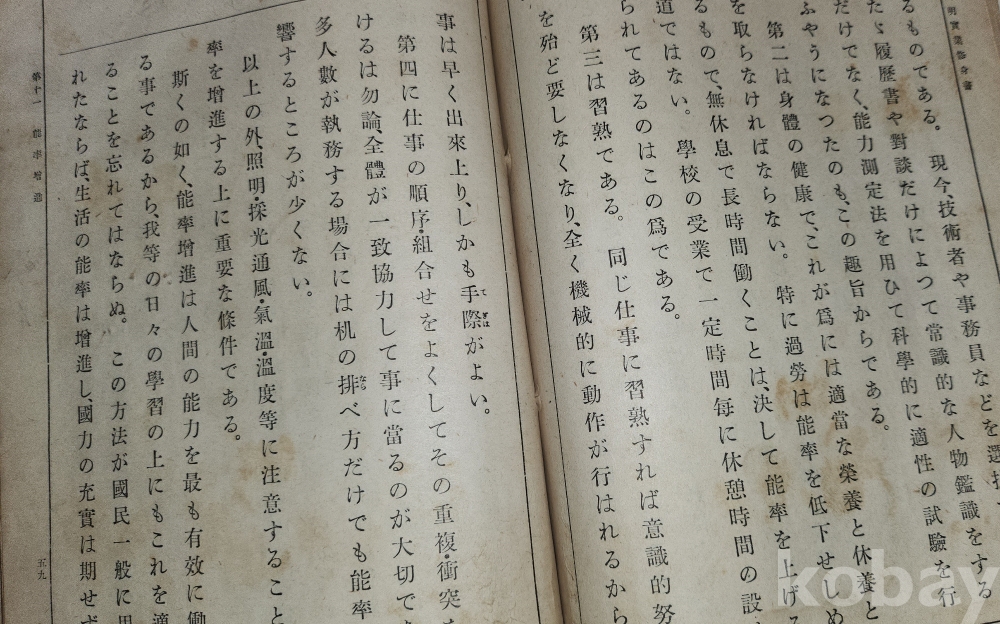 明實業修身書
るものである。現今、技術者や事務員などを選
たゞ履歷書や對談だけによつて常識的な人物鑑識をする
だけでなく、能力測定法を用ひて科學的に適性の試驗を行
ふやうになつたのも、この趣旨からである。
第二は身體の健康で、これが爲には適當な榮養と休養と
を取らなければならない。特に過勞は能率を低下せしめ
るもので、無休息で長時間働くことは、決して能率を上げる
道ではない。學校の受業で一定時間每に休憩時間の設
られてあるのはこの爲である。
第三は習熟である。同じ仕事に習熟すれば意識的努
を殆ど要しなくなり、全く機械的に動作が行はれるから
事は早く出來上り、しかも手際がよい。
第四に仕事の順序・組合せをよくしてその重複・衝突
けるは勿論、全體が一致協力して事に當るのが大切で
多人數が執務する場合には机の排べ方だけでも能率
響するところが少くない。
以上の外、照明・採光・通風・氣溫・溫度等に注意すること
率を增進する上に重要な條件である。
斯くの如く、能率增進は人間の能力を最も有效に働
る事であるから、我等の日々の學習の上にもこれを適
ることを忘れてはならぬ。この方法が國民一般に用
れたならば、生活の能率は增進し、國力の充實は期せず
第十一 能率增進
五九
kobay